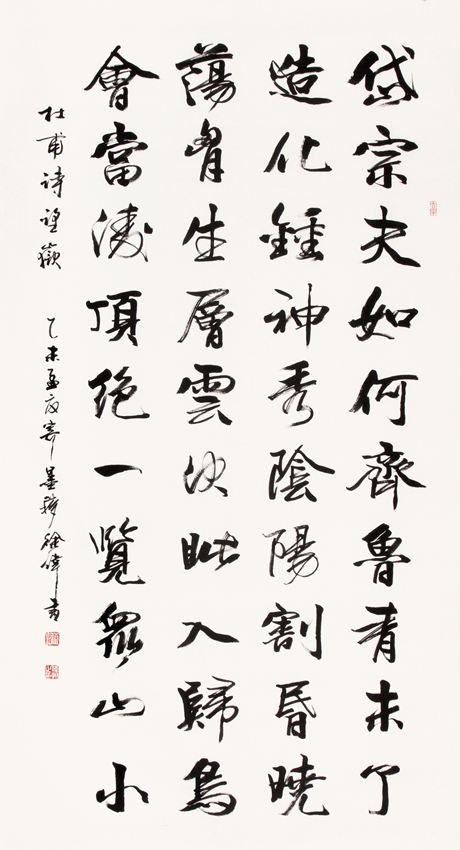 岱宗夫如何齊魯青未了
造化鍾神秀陰陽割昏曉
蕩胷生層雲決眦入歸鳥
會當淩頂絕一覽眾山小
杜甫詩望嶽 乙未孟夏寄墨軒徐偉書